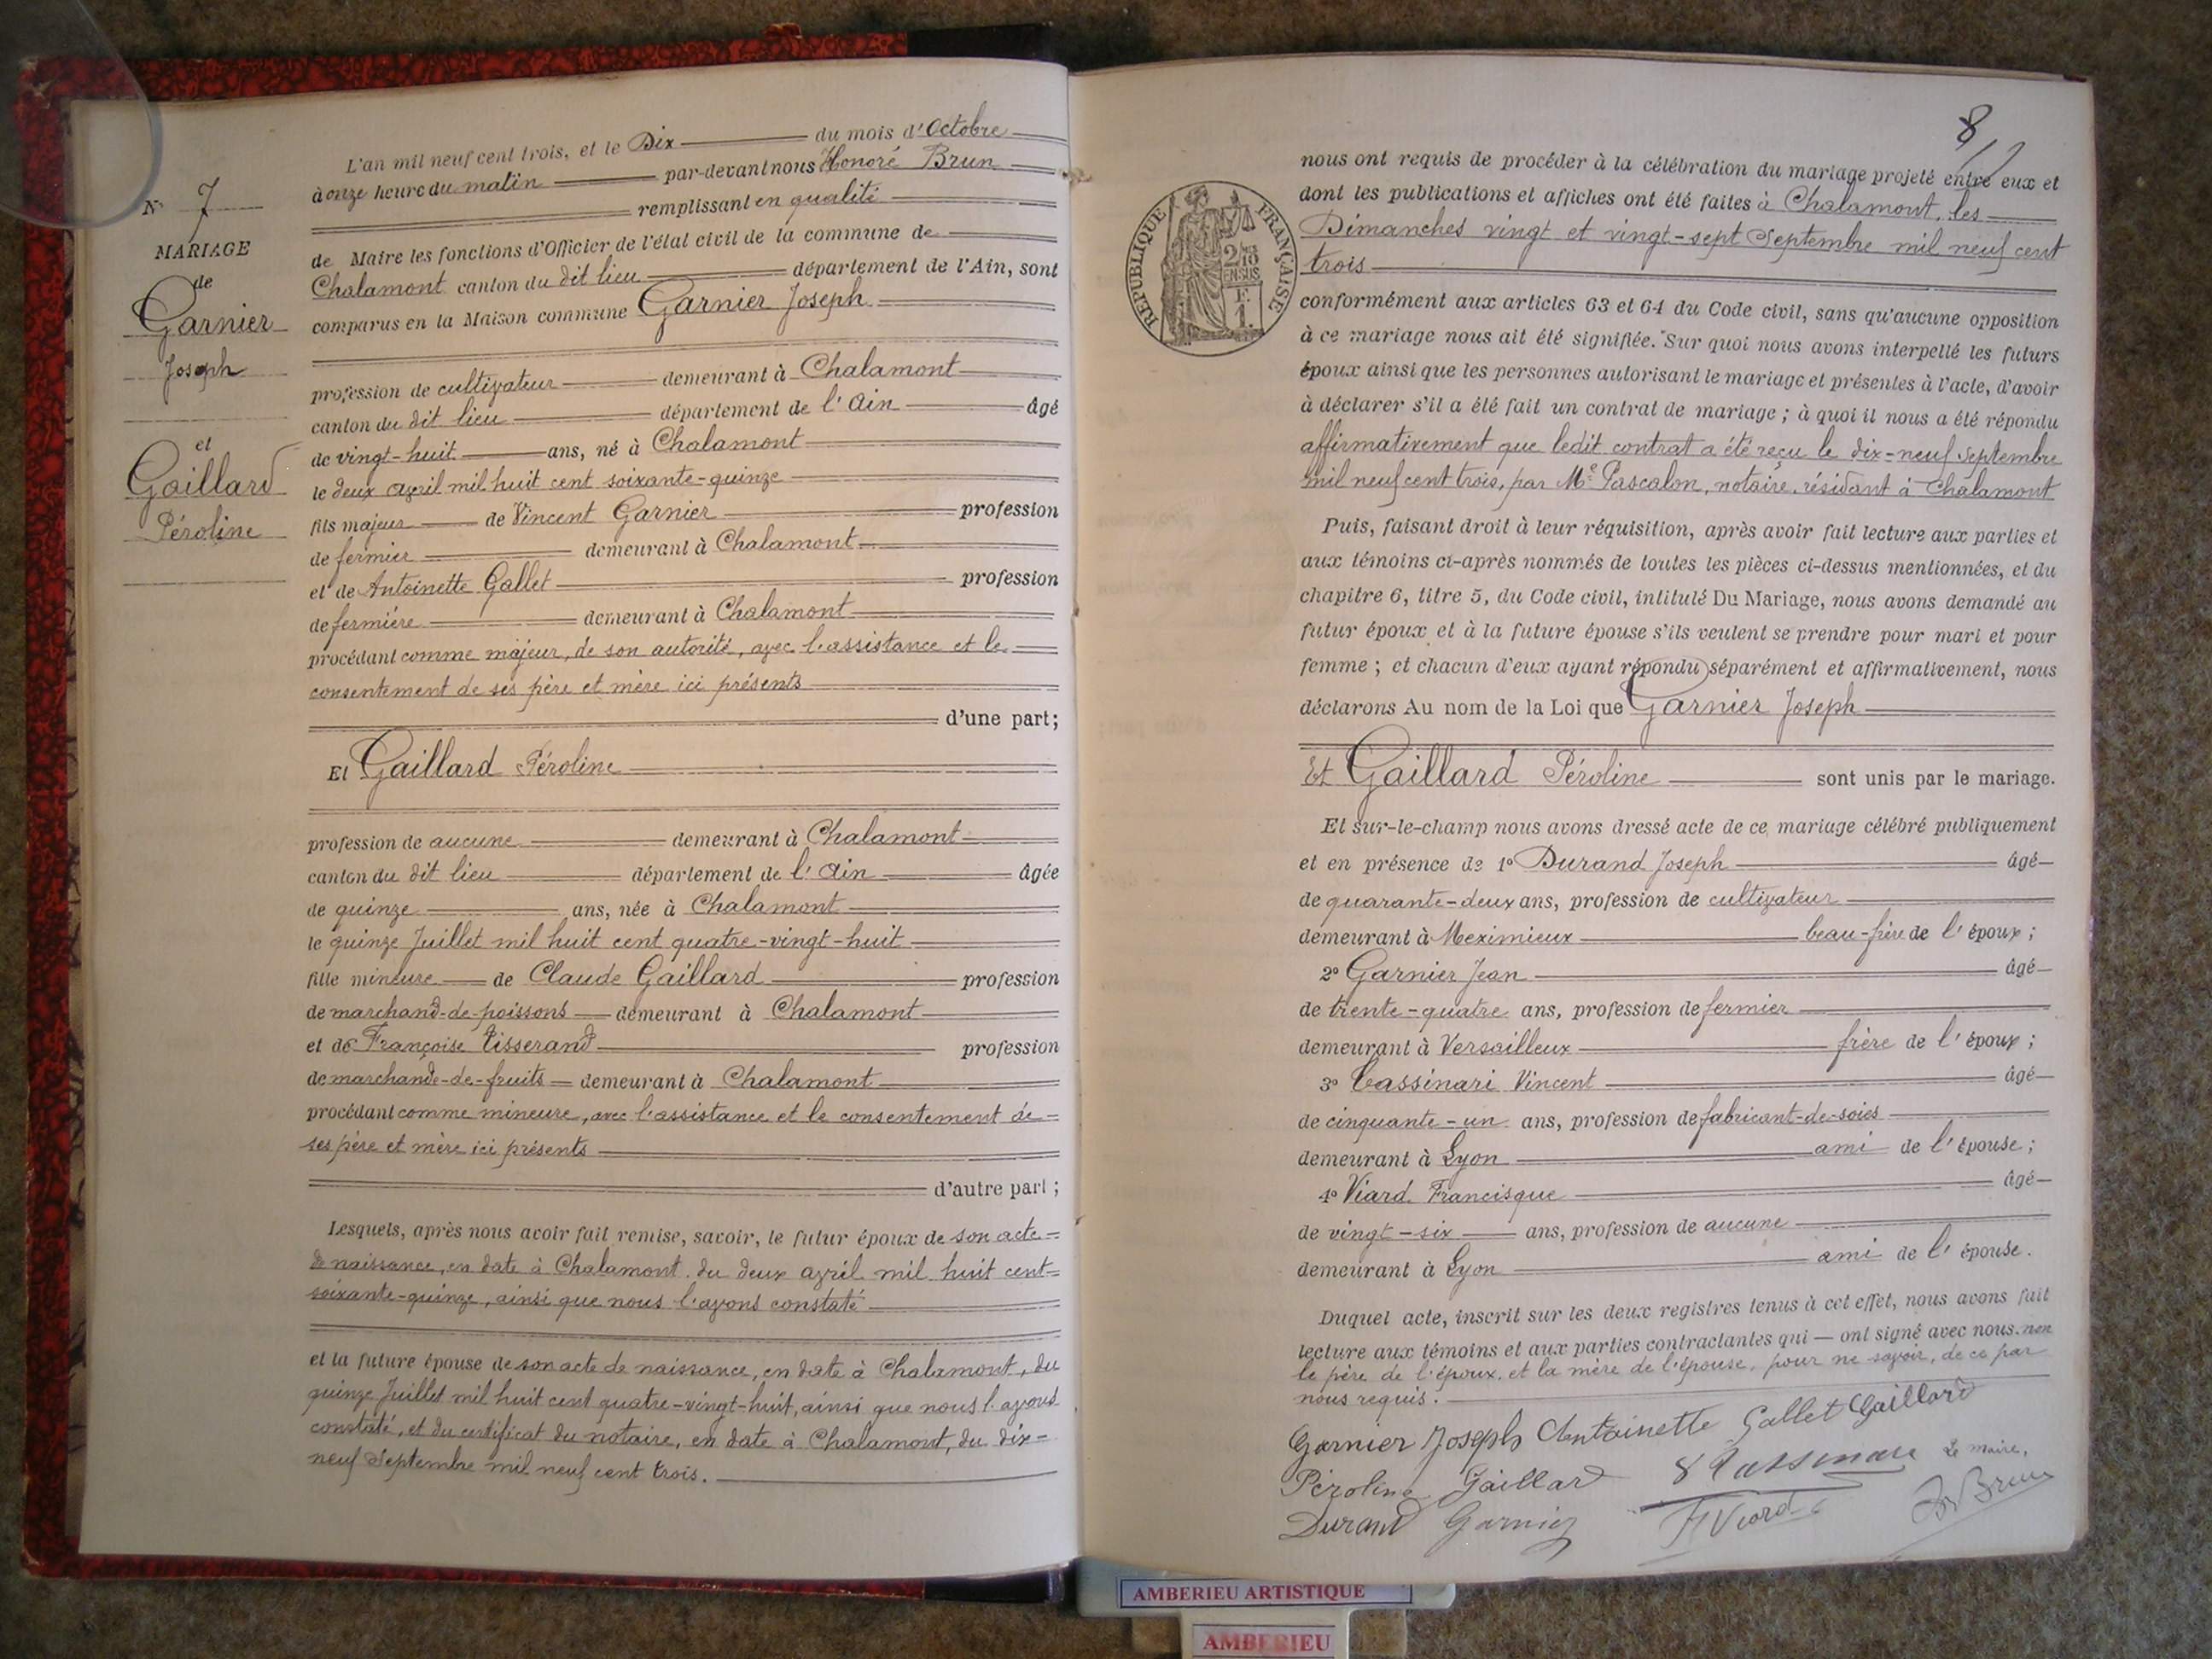 N° 7
MARIAGE
de
Garnier
Joseph
et
Gaillard
Péroline
L'an mil neuf cent trois, et le Dix du mois d'Octobre
à onze heure du matin par-devant nous Honoré Brun
remplissant en qualité
de Maire les fonctions d'Officier de l'état civil de la commune de
Chalamont canton du dit lieu département de l'Ain, sont
comparus en la Maison commune Garnier Joseph
profession de cultivateur demeurant à Chalamont
canton du dit lieu département de l'Ain âgé
de vingt-huit ans, né à Chalamont
le deux avril mil huit cent soixante-quinze
fils majeur de Vincent Garnier profession
de fermier demeurant à Chalamont
et de Antoinette Gallet profession
de fermière demeurant à Chalamont
procédant comme majeur, de son autorité, avec l'assistance et le
consentement de ses père et mère ici présents
d'une part;
Et Gaillard Péroline
profession de aucune demeurant à Chalamont
canton du dit lieu département de l'Ain âgée
de quinze ans, née à Chalamont
le quinze Juillet mil huit cent quatre-vingt-huit
fille mineure de Claude Gaillard profession
de marchand-de-poissons demeurant à Chalamont
et de Françoise Tisserand profession
de marchande-de-fruits demeurant à Chalamont
procédant comme mineure, avec l'assistance et le consentement de
ses père et mère ici présents
d'autre part;
Lesquels, après nous avoir fait remise, savoir, le futur époux de son acte
de naissance, en date à Chalamont du deux avril mil huit cent
soixante-quinze, ainsi que nous l'avons constaté
et la future épouse de son acte de naissance, en date à Chalamont, du
quinze Juillet mil huit cent quatre-vingt-huit, ainsi que nous l'avons
constaté, et du certificat du notaire, en date à Chalamont, du dix-
neuf Septembre mil neuf cent trois.
8
RÉPUBLIQUE FRANÇAISE
nous ont requis de procéder à la célébration du mariage projeté entre eux et
dont les publications et affiches ont été faites à Chalamont, les
Dimanches vingt et vingt-sept Septembre mil neuf cent
trois
conformément aux articles 63 et 64 du Code civil, sans qu'aucune opposition
à ce mariage nous ait été signifiée. Sur quoi nous avons interpellé les futurs
époux ainsi que les personnes autorisant le mariage et présentes à l'acte, d'avoir
à déclarer s'il a été fait un contrat de mariage; à quoi il nous a été répondu
affirmativement que ledit contrat a été reçu le dix-neuf Septembre
mil neuf cent trois, par Me Pascalon, notaire, résidant à Chalamont
Puis, faisant droit à leur réquisition, après avoir fait lecture aux parties et
aux témoins ci-après nommés de toutes les pièces ci-dessus mentionnées, et du
chapitre 6, titre 5, du Code civil, intitulé Du Mariage, nous avons demandé au
futur époux et à la future épouse s'ils veulent se prendre pour mari et pour
femme; et chacun d'eux ayant répondu séparément et affirmativement, nous
déclarons Au nom de la Loi que Garnier Joseph
Et Gaillard Péroline sont unis par le mariage.
Et sur-le-champ nous avons dressé acte de ce mariage célébré publiquement
et en présence de 1° Durand Joseph âgé
de quarante-deux ans, profession de cultivateur
demeurant à Meximieux beau-frère de l'époux;
2° Garnier Jean âgé
de trente-quatre ans, profession de fermier
demeurant à Versailleux frère de l'époux;
3° Cassinari Vincent âgé
de cinquante-un ans, profession de fabricant-de-soies
demeurant à Lyon ami de l'épouse;
4° Viard Francisque âgé
de vingt-six ans, profession de aucune
demeurant à Lyon ami de l'épouse.
Duquel acte, inscrit sur les deux registres tenus à cet effet, nous avons fait
lecture aux témoins et aux parties contractantes qui ont signé avec nous, non
le père de l'époux, et la mère de l'épouse, pour ne savoir, de ce par
nous requis.
Garnier Joseph Antoinette Gallet Gaillard
Péroline Gaillard Le maire,
Durand Garnier F Viard Brun
AMBERIEU ARTISTIQUE
AMBERIEU